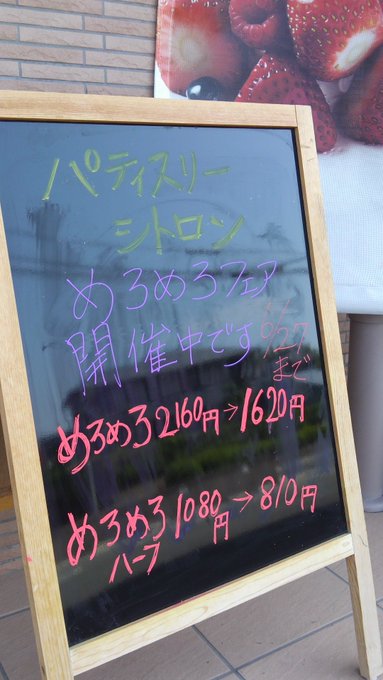 パティスリー
シトロン
めろめろフェア
開催中です 6/27
まで
めろめろ 2160円→1620円
めろめろ 1080円→810円
ハーフ